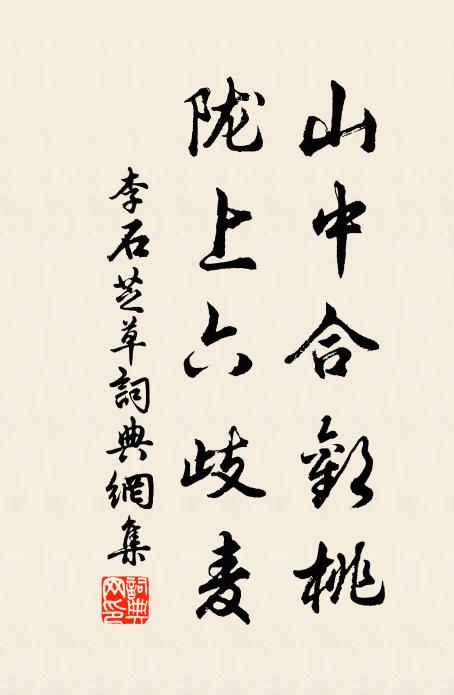 山中合歡桃
陇上六歧麦
李石芝草詞典網集
詞典
网印